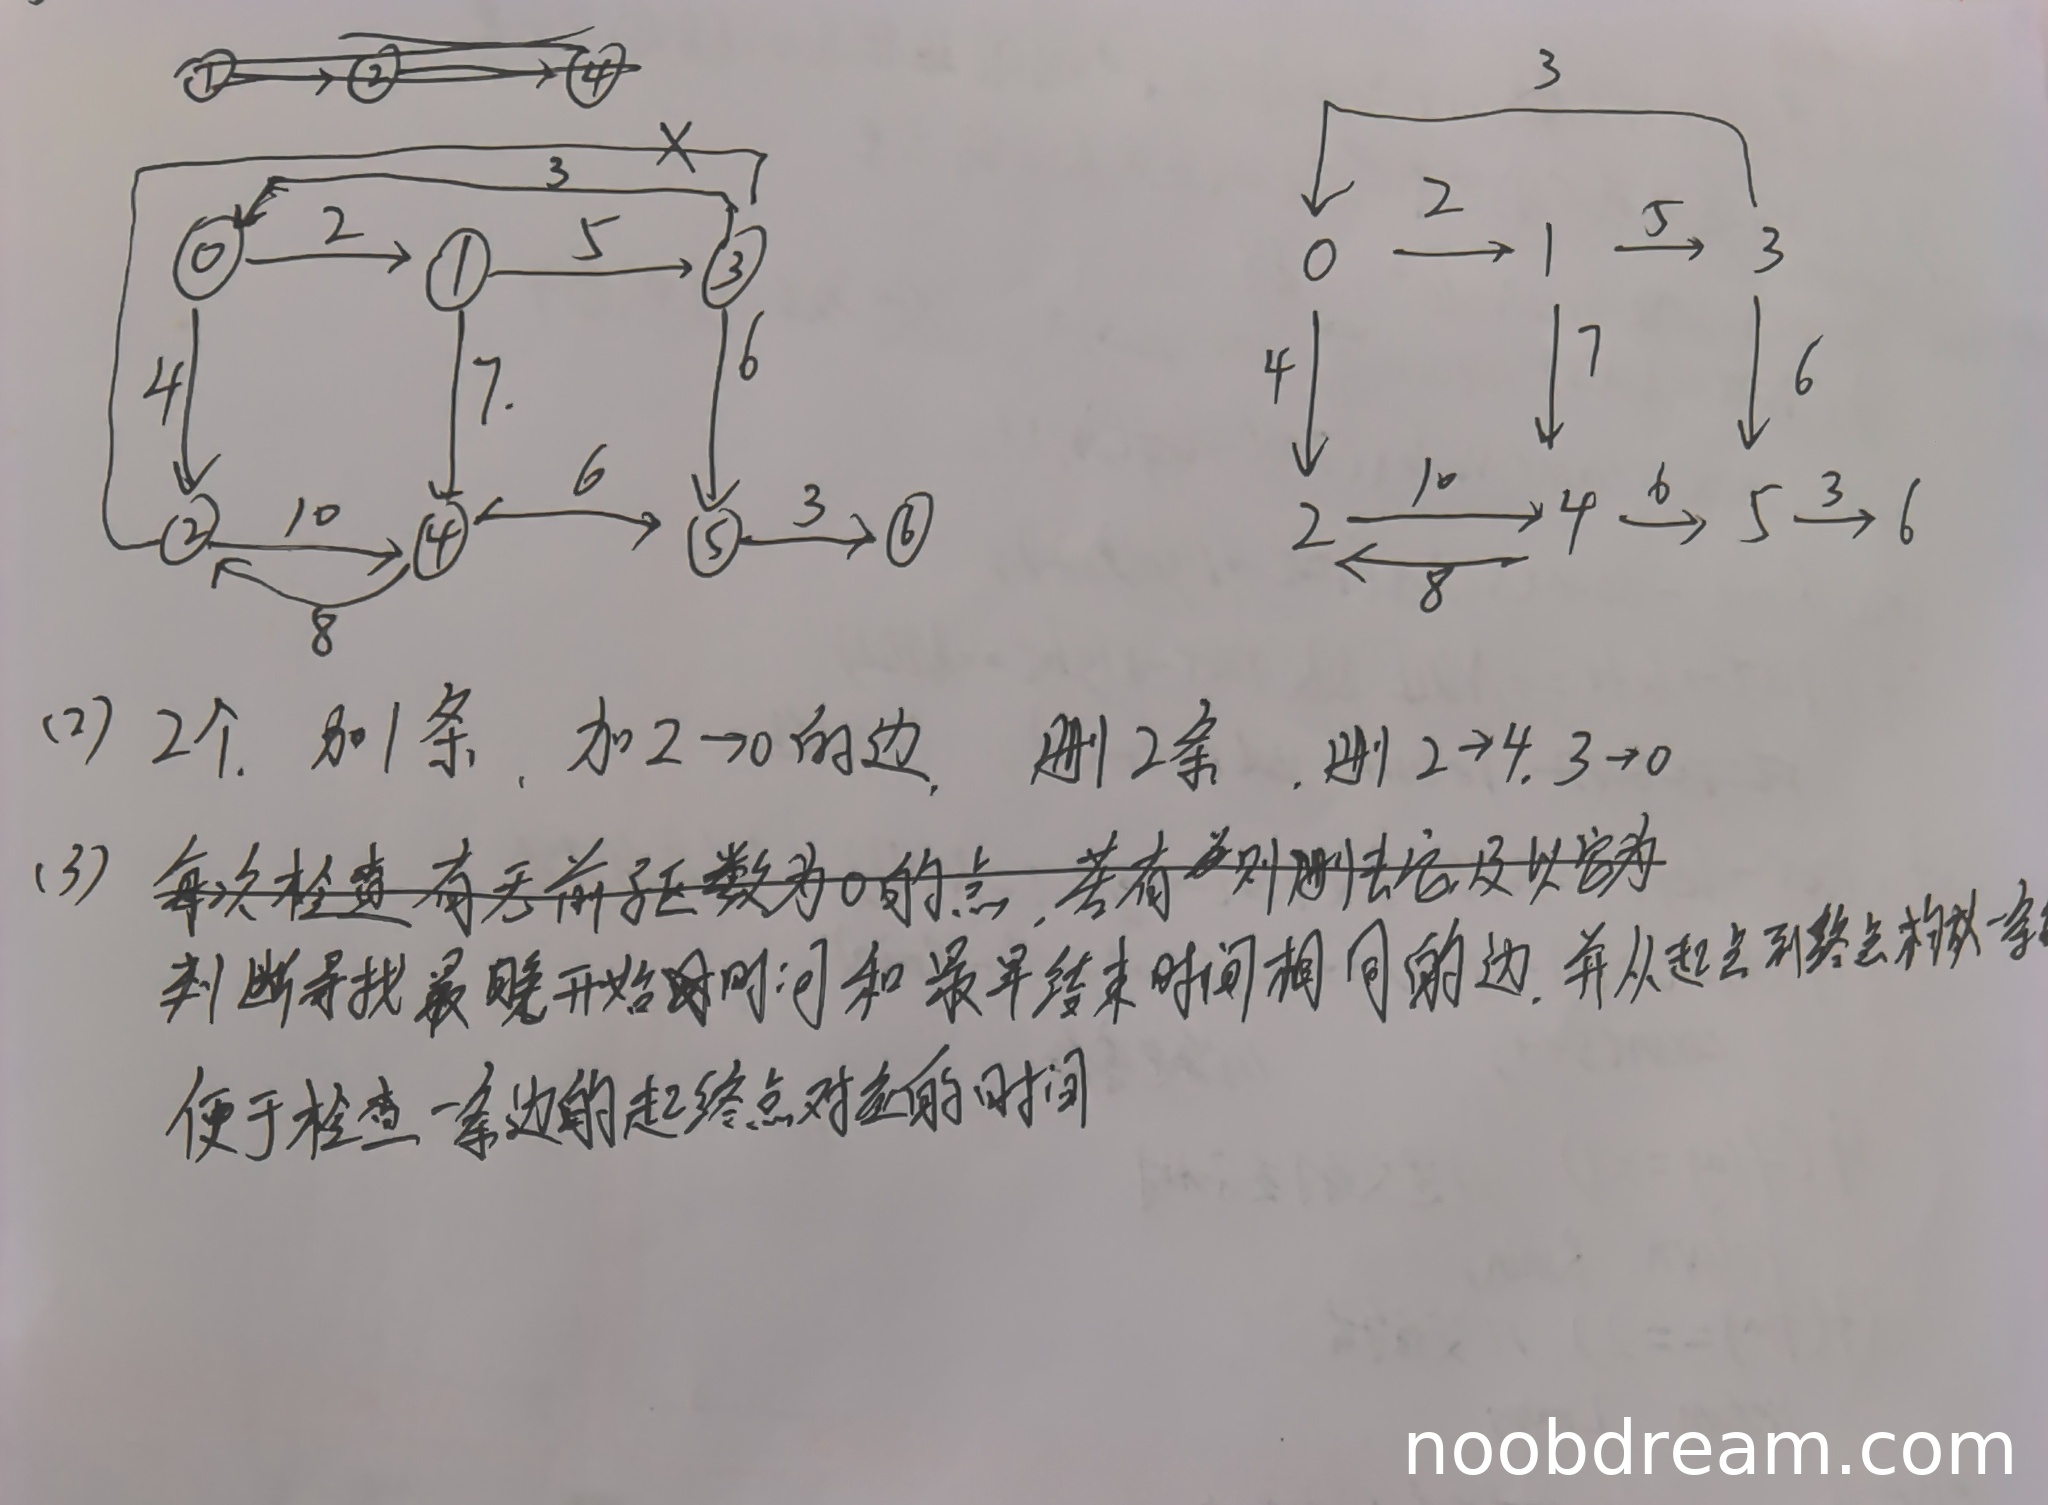 ① ② ④
3
X
3
0 2 1 5 3
0 2 1 5 3
4 7. 6
4 7 6
2 10 4 6 5 3 6
2 10 4 6 5 3 6
8
8
(2) 2个. 加1条, 加2→0的边, 删2条, 删2→4. 3→0
(3) 每次检查有无前驱数为0的点, 若有则删去它及以它为
判断寻找最晚开始时间和最早结束时间相同的边, 并从起点到终点构成一条
便于检查一条边的起终点对应的时间
noobdream.com